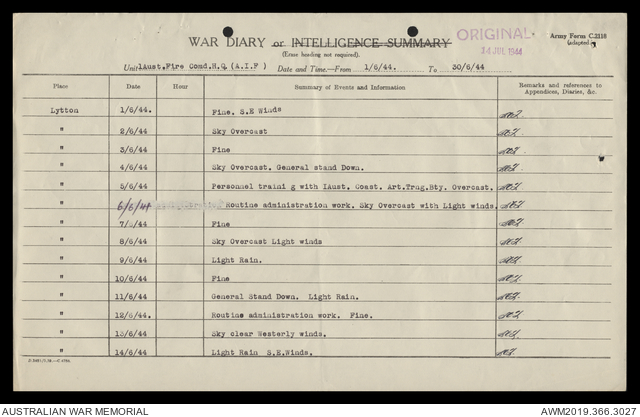 WAR DIARY or INTELLIGENCE SUMMARY
(Erase heading not required).
ORIGINAL
14 JUL 1944
Army Form C.2118
(adapted)
Unit 1Aust.Fire Comd.H.Q.(A.I.F) Date and Time.—From 1/6/44. To 30/6/44
Place Date Hour Summary of Events and Information Remarks and references to Appendices, Diaries, &c.
Lytton 1/6/44. Fine. S.E Winds
" 2/6/44 Sky Overcast
" 3/6/44 Fine
" 4/6/44 Sky Overcast. General stand Down.
" 5/6/44 Personnel traini g with 1Aust. Coast. Art.Trng.Bty. Overcast.
" 6/6/44 Routine administration work. Sky Overcast with Light winds.
" 7/6/44 Fine
" 8/6/44 Sky Overcast Light winds
" 9/6/44 Light Rain.
" 10/6/44 Fine
" 11/6/44 General Stand Down. Light Rain.
" 12/6/44. Routine administration work. Fine.
" 13/6/44 Sky clear Westerly winds.
" 14/6/44 Light Rain S.E.Winds.
AUSTRALIAN WAR MEMORIAL
AWM2019.366.3027